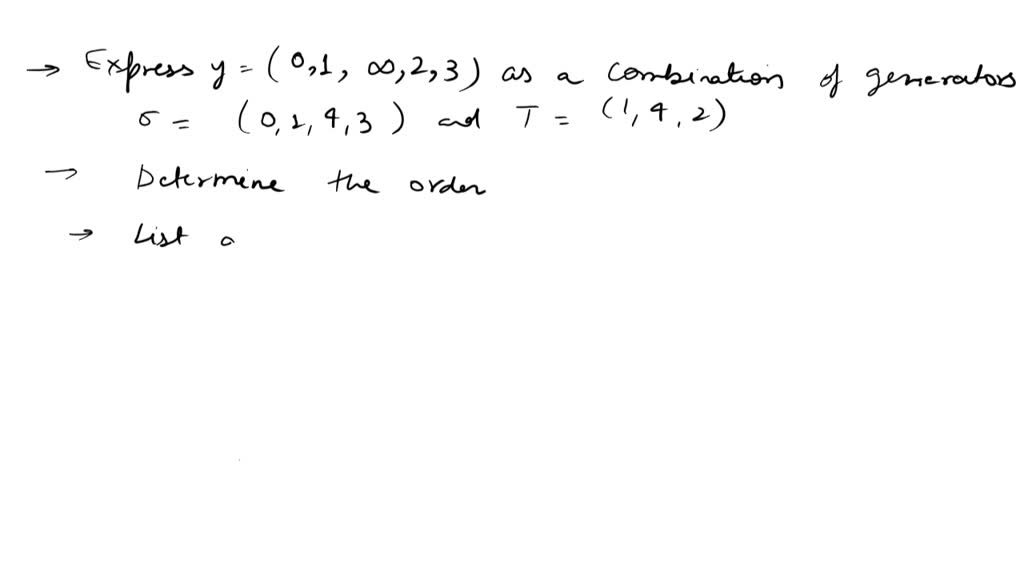 → Express y = (0,1, ∞,2,3) as a combination of generators
σ = (0,1,4,3) and T = (1,4,2)
→ Determine the order
→ List a